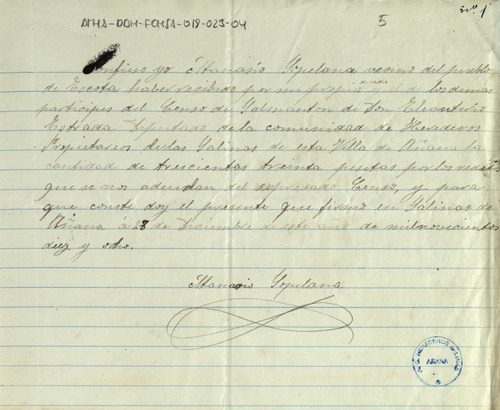 ATHA-DDH-FCHSA-018-023-04
5
nº 1
Confieso yo Atanasio Gopelana vecino del pueblo
de Escota haber recibido por mi propio y el de los demas
participes del Censo de Galsmanton de Don Eleauterio
Estrada Diputado de la comunidad de Herederos
Propietarios de las Salinas de esta Villa de Añana la
cantidad de trescientas treinta pesetas por los redito
que se nos adeudan del espresado Censo, y para
que conste doy el presente que firmo en Salinas de
Añana á 28 de Diciembre de este año de milnovicientos
diez y ocho.
Atanasio Gopelana
HEREDEROS
AÑANA